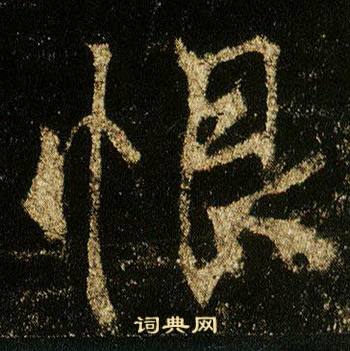 恨
词典网